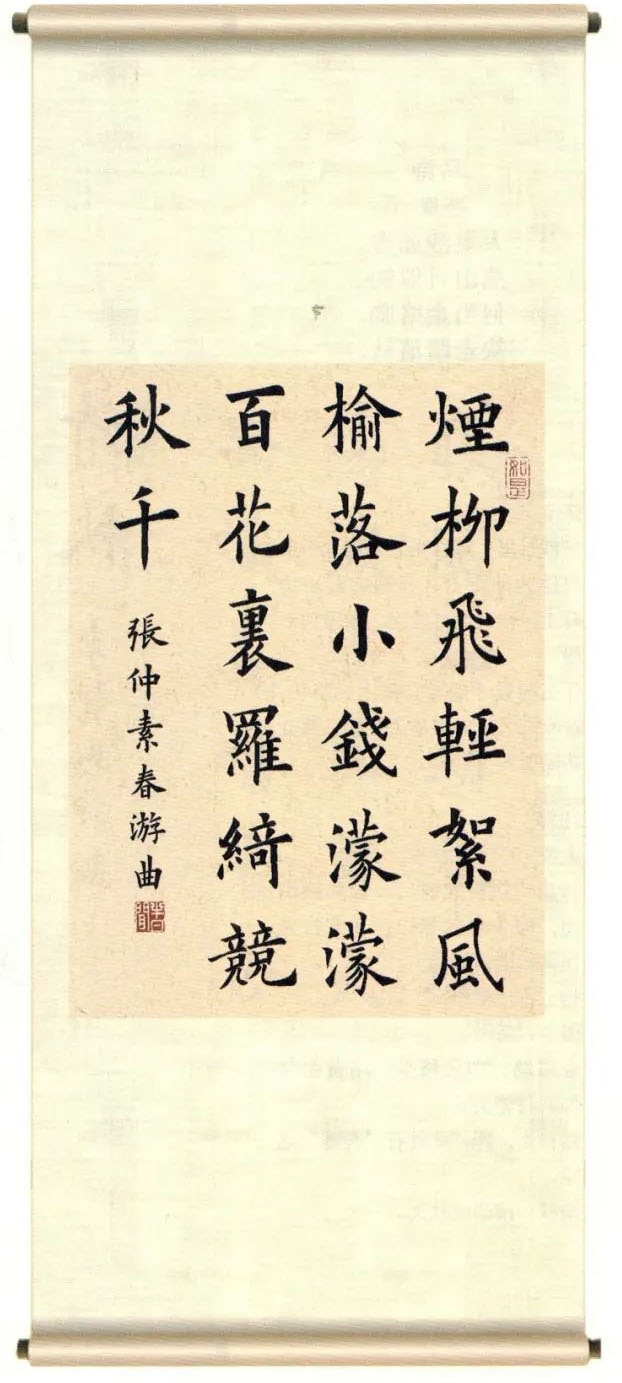 煙柳飛輕絮風
榆落小錢濛濛
百花裏羅綺競
秋千
張仲素春游曲
如是